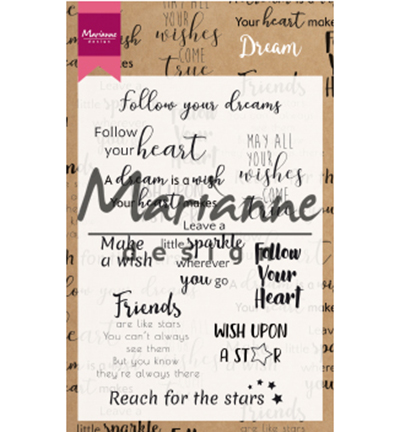 Marianne
design
MAY ALL
YOUR
wishes
COME
true
Your heart makes
Dream
Follow your dreams
Follow
your heart
MAY ALL
YOUR
wishes
COME
A dream is a wish
Your heart makes
Marianne
Leave a
Make
a wish
little sparkle
wherever
you go
desig
Follow
Your
Heart
Friends
are like stars
You can't always
see them
But you know
they're always there
WISH UPON
A ST R
Reach for the stars
little sparkle
Friends
are like stars